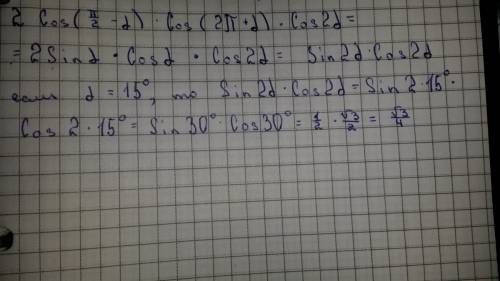 2 Cos(π/2 - α) · Cos(2π + α) · Cos2α =
= 2Sinα · Cosα · Cos2α = Sin2α · Cos2α
если α = 15°, то Sin2α · Cos2α = Sin 2 · 15° ·
Cos 2 · 15° = Sin30° · Cos30° = 1/2 · √3/2 = √3/4